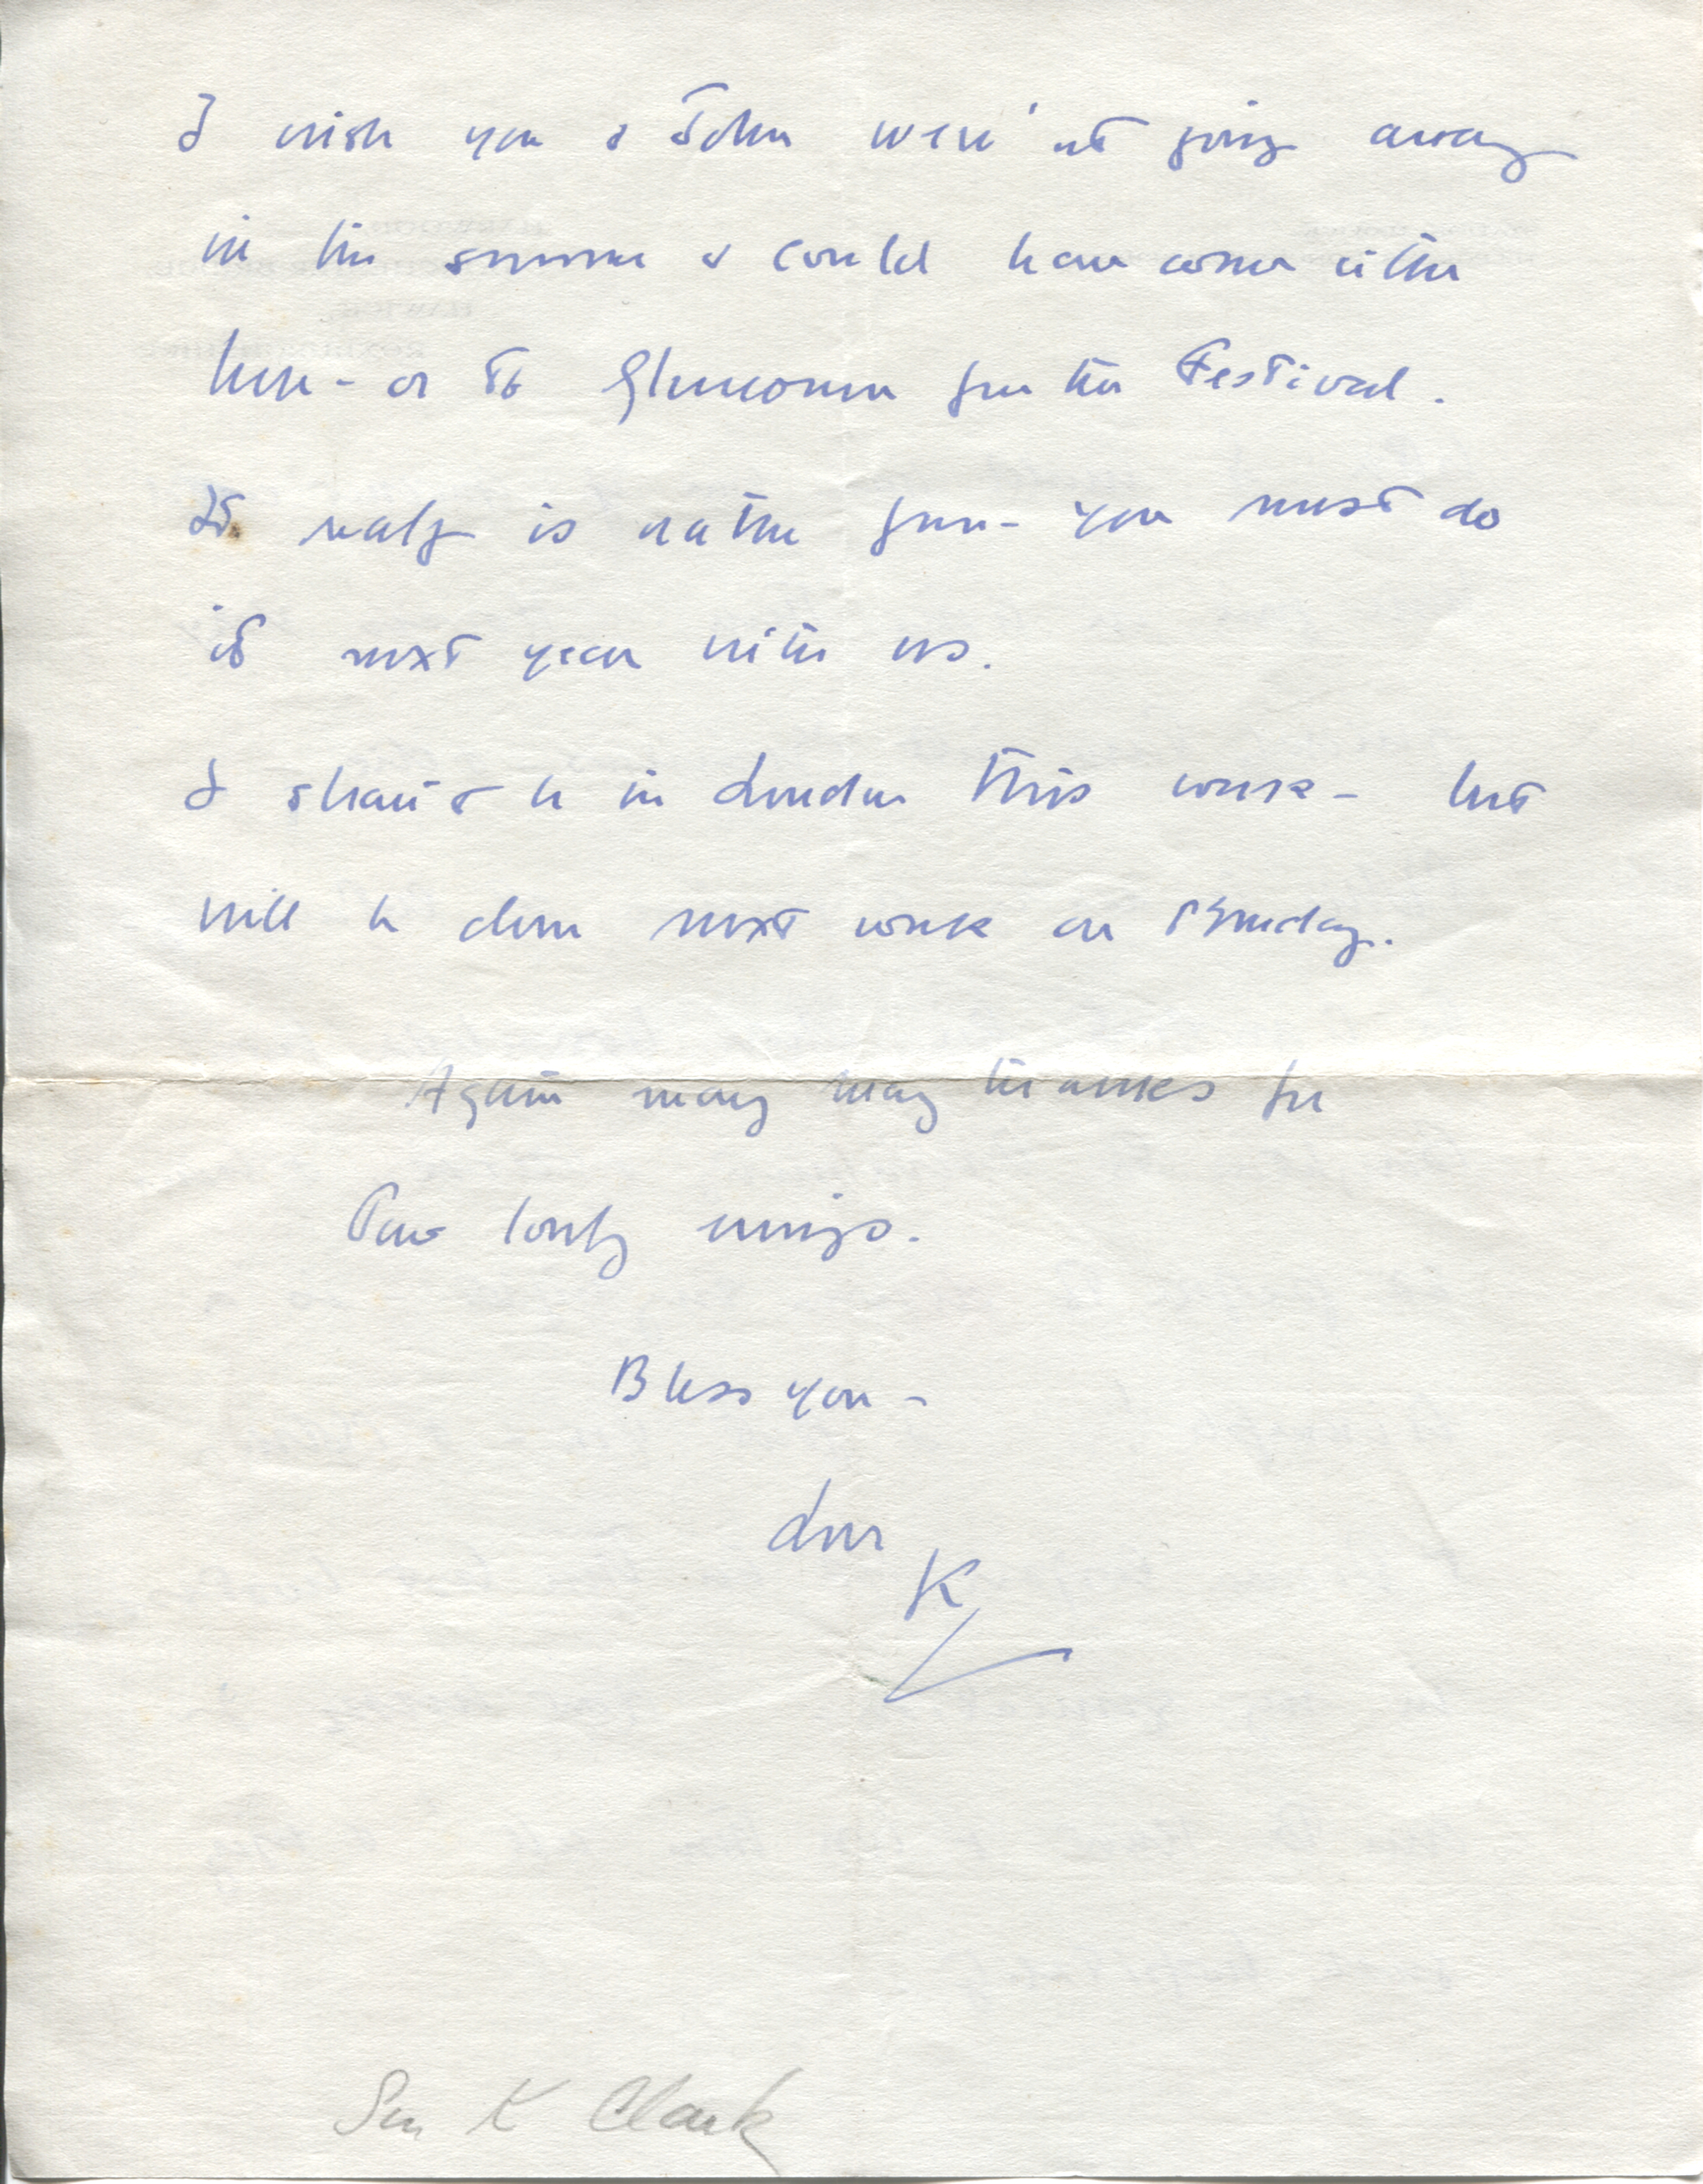 I wish you & John were'nt going away
in the summer & could have come either
here - or to Glenconner for the Festival.
It really is rather fun - you must do
it next year with us.
I shan't be in London this week - but
will be down next week on
Again many many thanks for
lovely
Bless you -
Love
K
K Clark